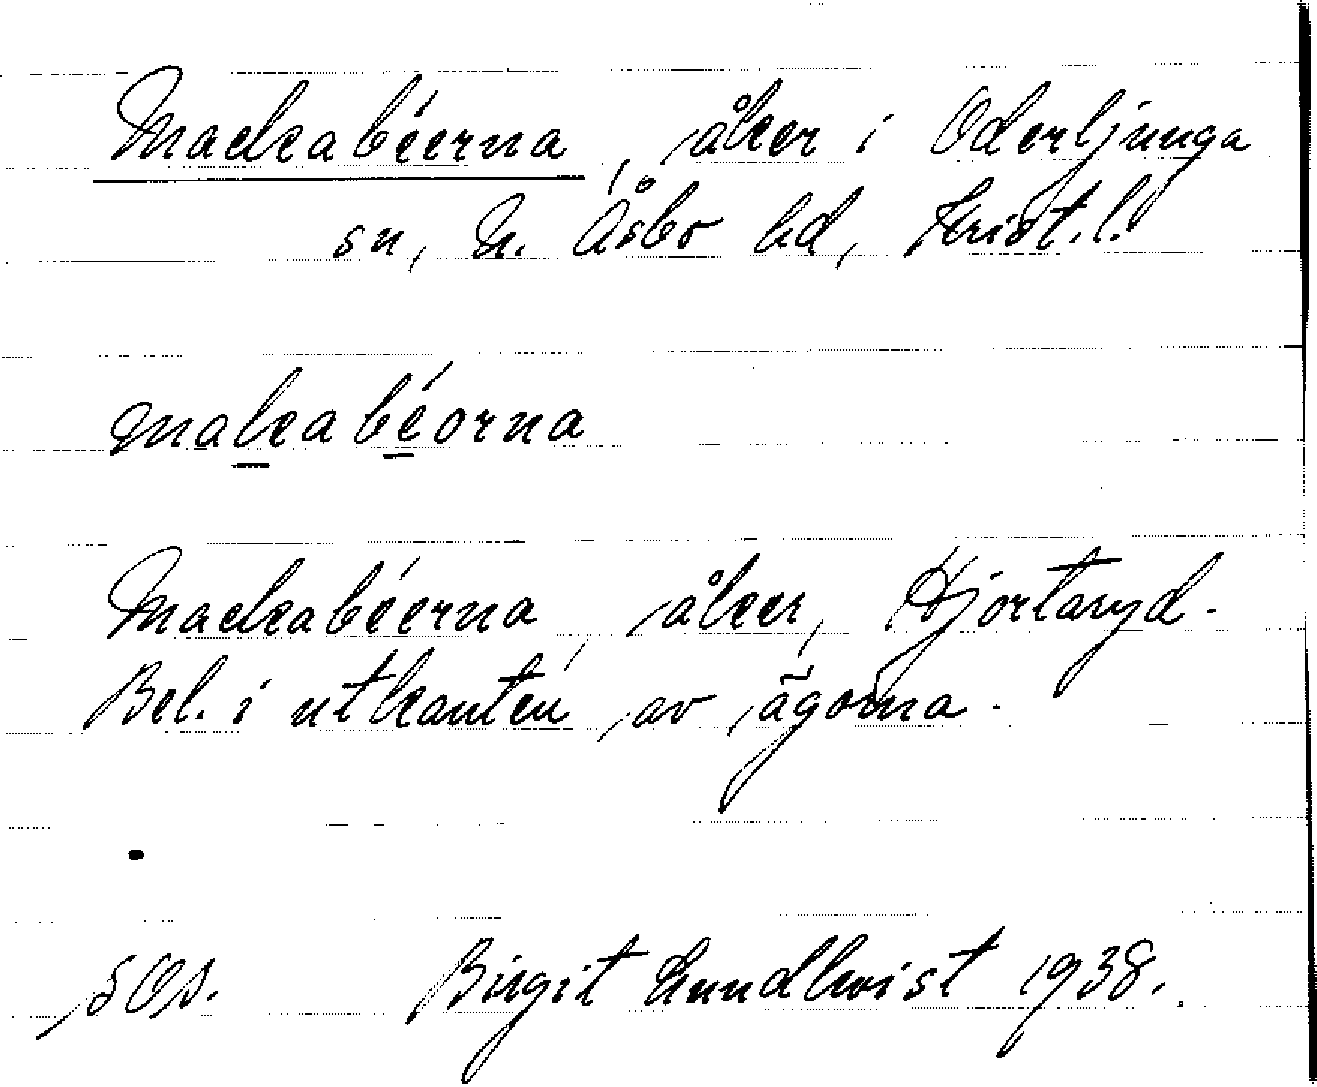 Mackabéerna, åker i Oderljunga
sn, N. Åsbo hd, Krist.l.
makabéorna
Mackabéerna, åker, Hjortaryd.
Bel. i utkanten av ägorna.
SOS. Birgit Lundkvist 1938.